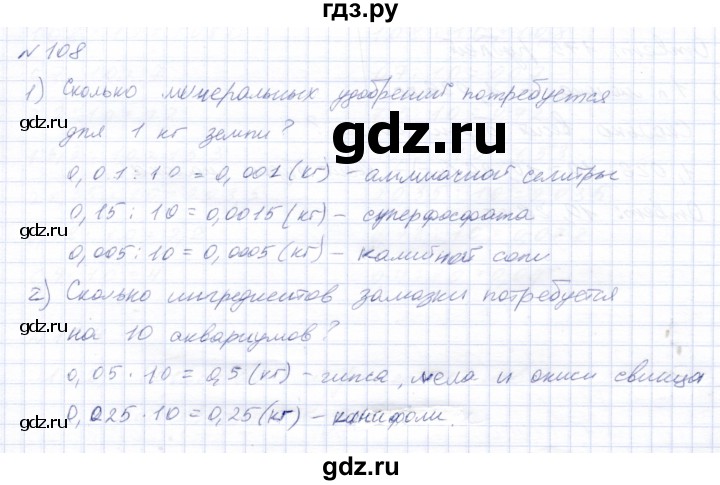 гдз.ру
№ 108
1) Сколько минеральных удобрений потребуется
для 1 кг земли?
gdz.ru
gdz.ru
gdz.ru
0,01 : 10 = 0,001 (кг) - аммиачной селитры
0,15 : 10 = 0,0015 (кг) - суперфосфата
gdz.ru
gdz.ru
0,005 : 10 = 0,0005 (кг) - калийной соли
2) Сколько ингредиентов замазки потребуется
на 10 аквариумов?
gdz.ru
gdz.ru
0,05 · 10 = 0,5 (кг) - гипса, мела и окиси свинца
0,025 · 10 = 0,25 (кг) - канифоли.
gdz.ru
gdz.ru
gdz.ru